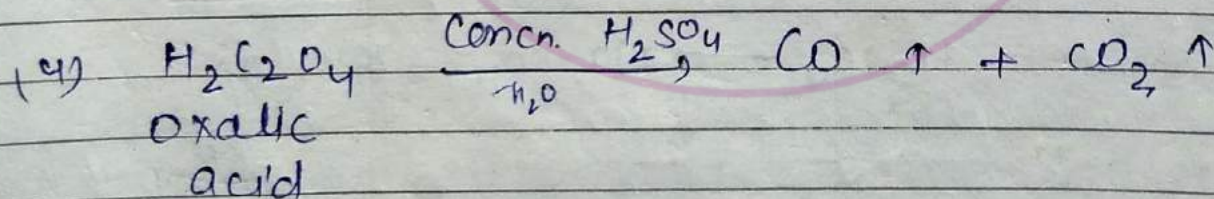 (4) H₂C₂O₄ Concn. H₂SO₄ → -H₂O CO ↑ + CO₂ ↑
oxalic
acid